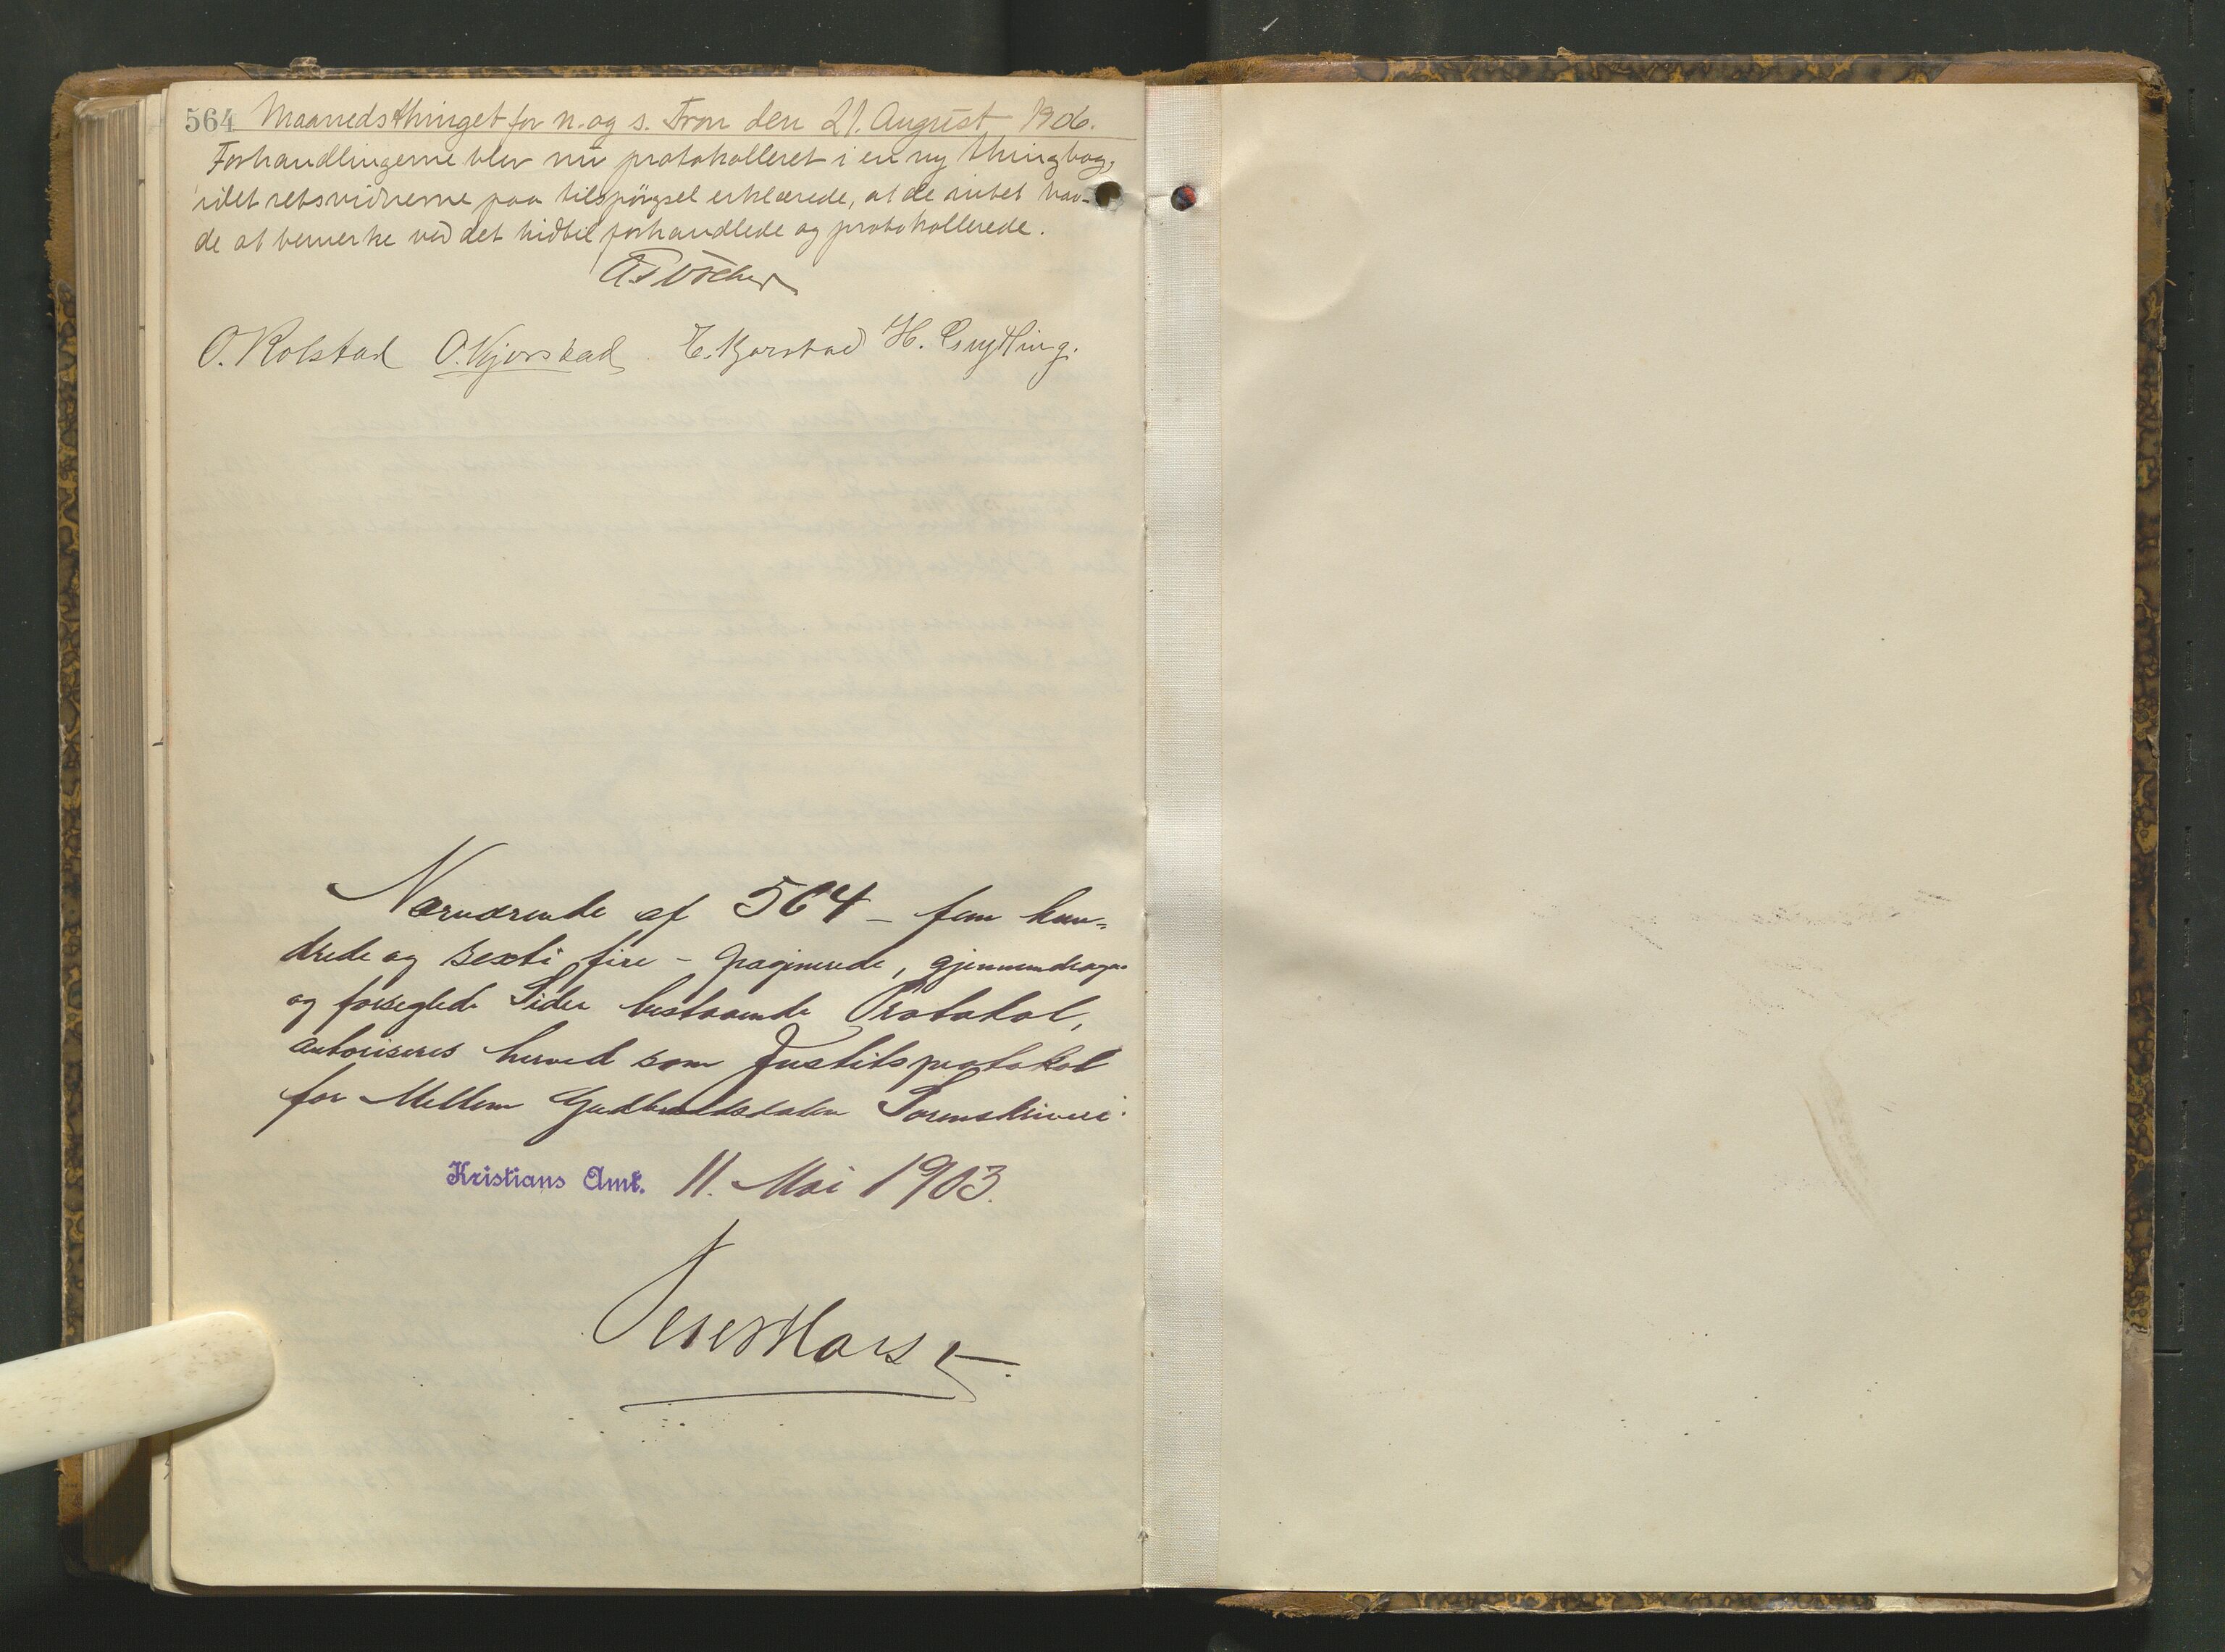 564 Maanedsthinget for n. og s. Fron den 21. August 1906.
Forhandlingerne blev nu protokolleret i en ny thingbog,
idet retsvidnerne paa tilspørgsel erklærede, at de intet hav-
de at bemerke ved det hidtil forhandlede og protokollerede.
O. Kolstad O. Kjorstad E. Kjorstad H.
Nærværende af 564 – fem hun-
drede og sexti fire – paginerede, gjennemdragne
og forseglede Sider bestaaende Protokol,
autoriseres herved som Justitsprotokol
for Mellem Gudbrandsdalen Sorenskriveri.
Kristians Amt. 11. Mai 1903.